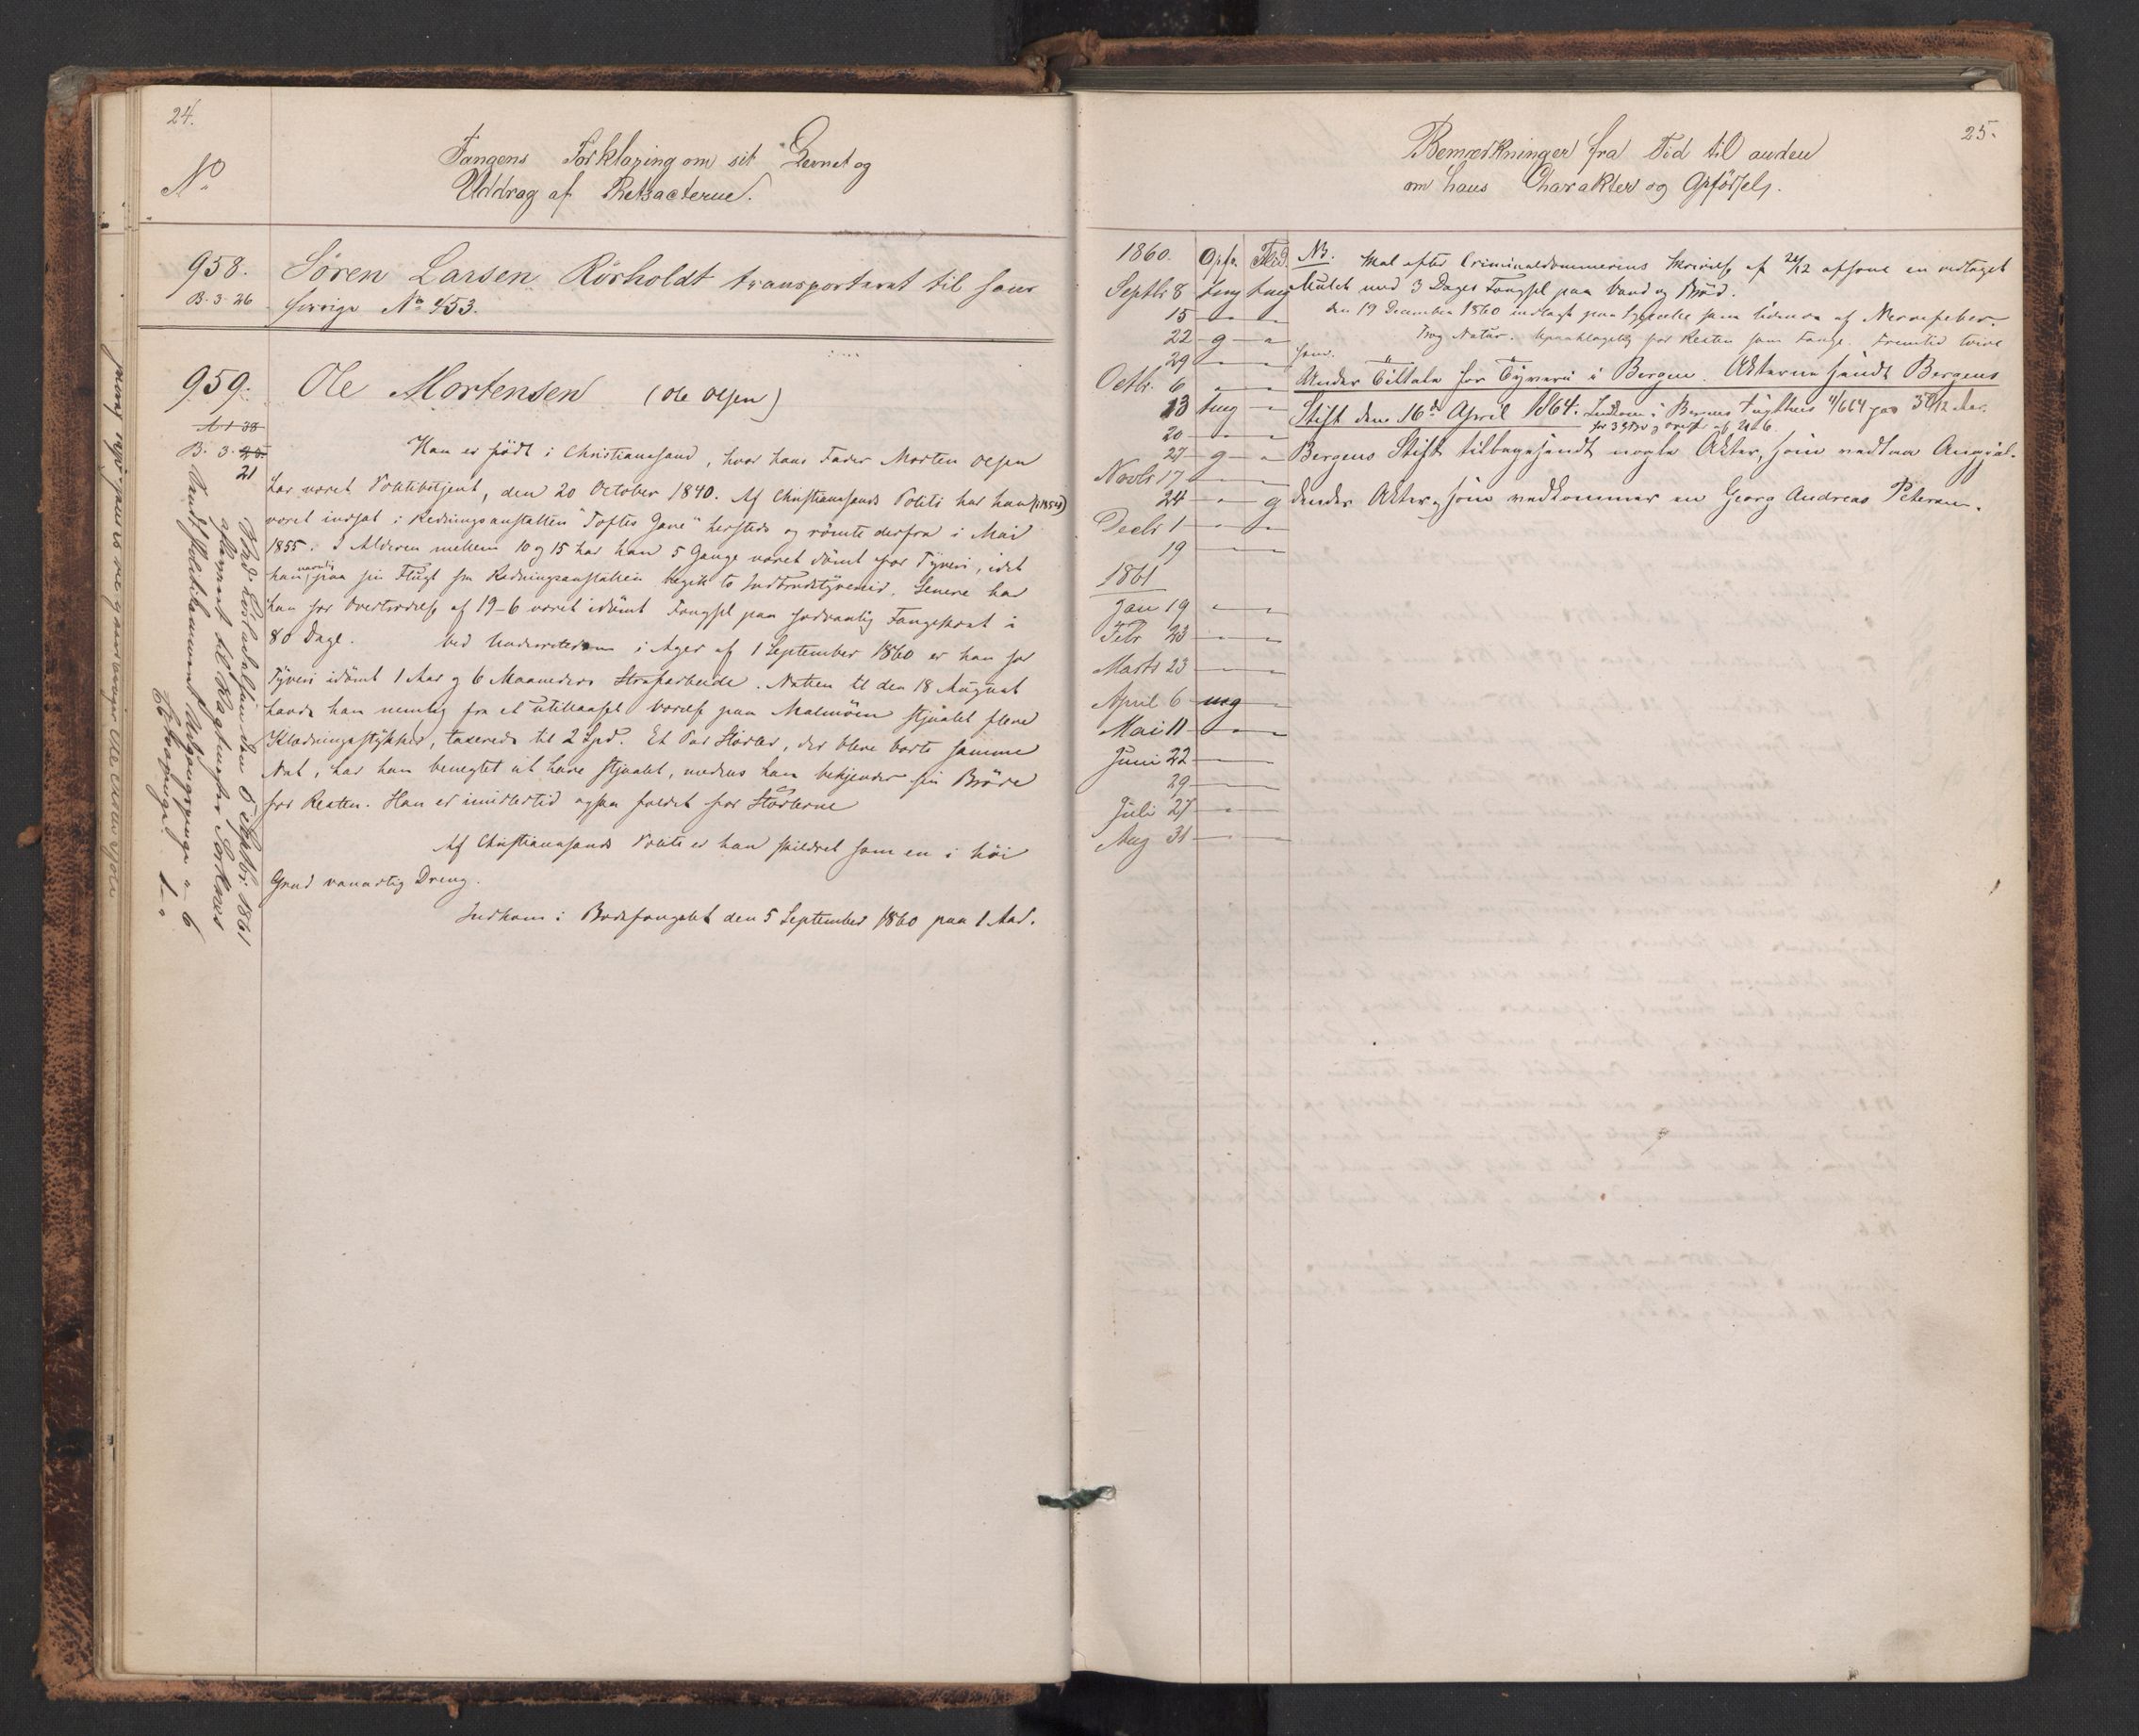 24.
No
Fangens Forklaring om sit Levnet og
Uddrag af Retsacterne.
958.
B. 3. 26
Sören Larsen Rörholdt transporteret til hans
forrige No 453.
959.
A 1 38
B. 3.
21
Ole Mortensen (Ole Olsen)
Han er født i Christianssand, hvor hans Fader Morten Olsen
har været Politibetjent, den 20 October 1840. Af Christianssands Politi har han
været indsat i Redningsanstalten "Toftes Gave" hersteds og römte derfra i Mai
1855. I Alderen mellem 10 og 15 har han 5 Gange været dömt for Tyveri, idet
han navnlig paa sin Flugt fra Redningsanstalten begik to Indbrudstyverier. Senere har
han for Overtrædelse af 19-6 været idömt Fængsel paa sædvanlig Fangekost i
80 Dage. Ved Underretsdom i Ager af 1 September 1860 er han for
Tyveri idömt 1 Aar og 6 Maaneders Strafarbeide. Natten til den 18 August
havde han nemlig fra et utillaaset Værelse paa Malmöen stjaalet flere
Klædningsstykker, taxerede til 2 Spd. Et Par Stövler, der bleve borte samme
Nat, har han benegtet at have stjaalet, medens han bekjender sin Bröde
for Resten. Han er imidlertid ogsaa fældet for Stövlerne
Af Christianssands Politi er han skildret som en i höi
Grad vanartig Dreng.
Indkom i Bodsfængslet den 5 September 1860 paa 1 Aar.
Ved Lösladelsen den 5 Septbr. 1861
afleveret til Vagtmester
Sendt Politikammeret Udgangspenge " - 6
1 - "
25.
Bemærkninger fra Tid til anden
om hans Charakter og Opförsel.
1860. Opf. Flid.
Septbr 8 tmg tmg
15 " "
22 g "
29 " "
Octbr. 6 " "
13 tmg "
20 " "
27 g "
Novbr 17 " "
24 " g
Decbr 1 " "
19
1861
Jan 19 " "
Febr 23 " "
Marts 23
April 6 mg
Mai 11 " "
Juni 22
29
Juli 27
Aug 31
NB. Skal efter Criminaldommerens Skrivelse af 24/12 afsone en vedtaget
Mulct med 3 Dages Fængsel paa Vand og Bröd.
den 19 December 1860 indlagt paa Sygecelle som lidende af Nervefeber.
Træg Natur. Upaaklagelig for Resten som Fange. Fremtid tvivl
som.
Under Tiltale for Tyveri i Bergen. Akterne sendt Bergens
Stift den 16de April 1864. Indkom i Bergens Tugthus
Bergens Stift tilbagesendt nogle Akter, som vedtaa Angjæl-
dendes Akter, som vedkommer en Georg Andreas Petersen.